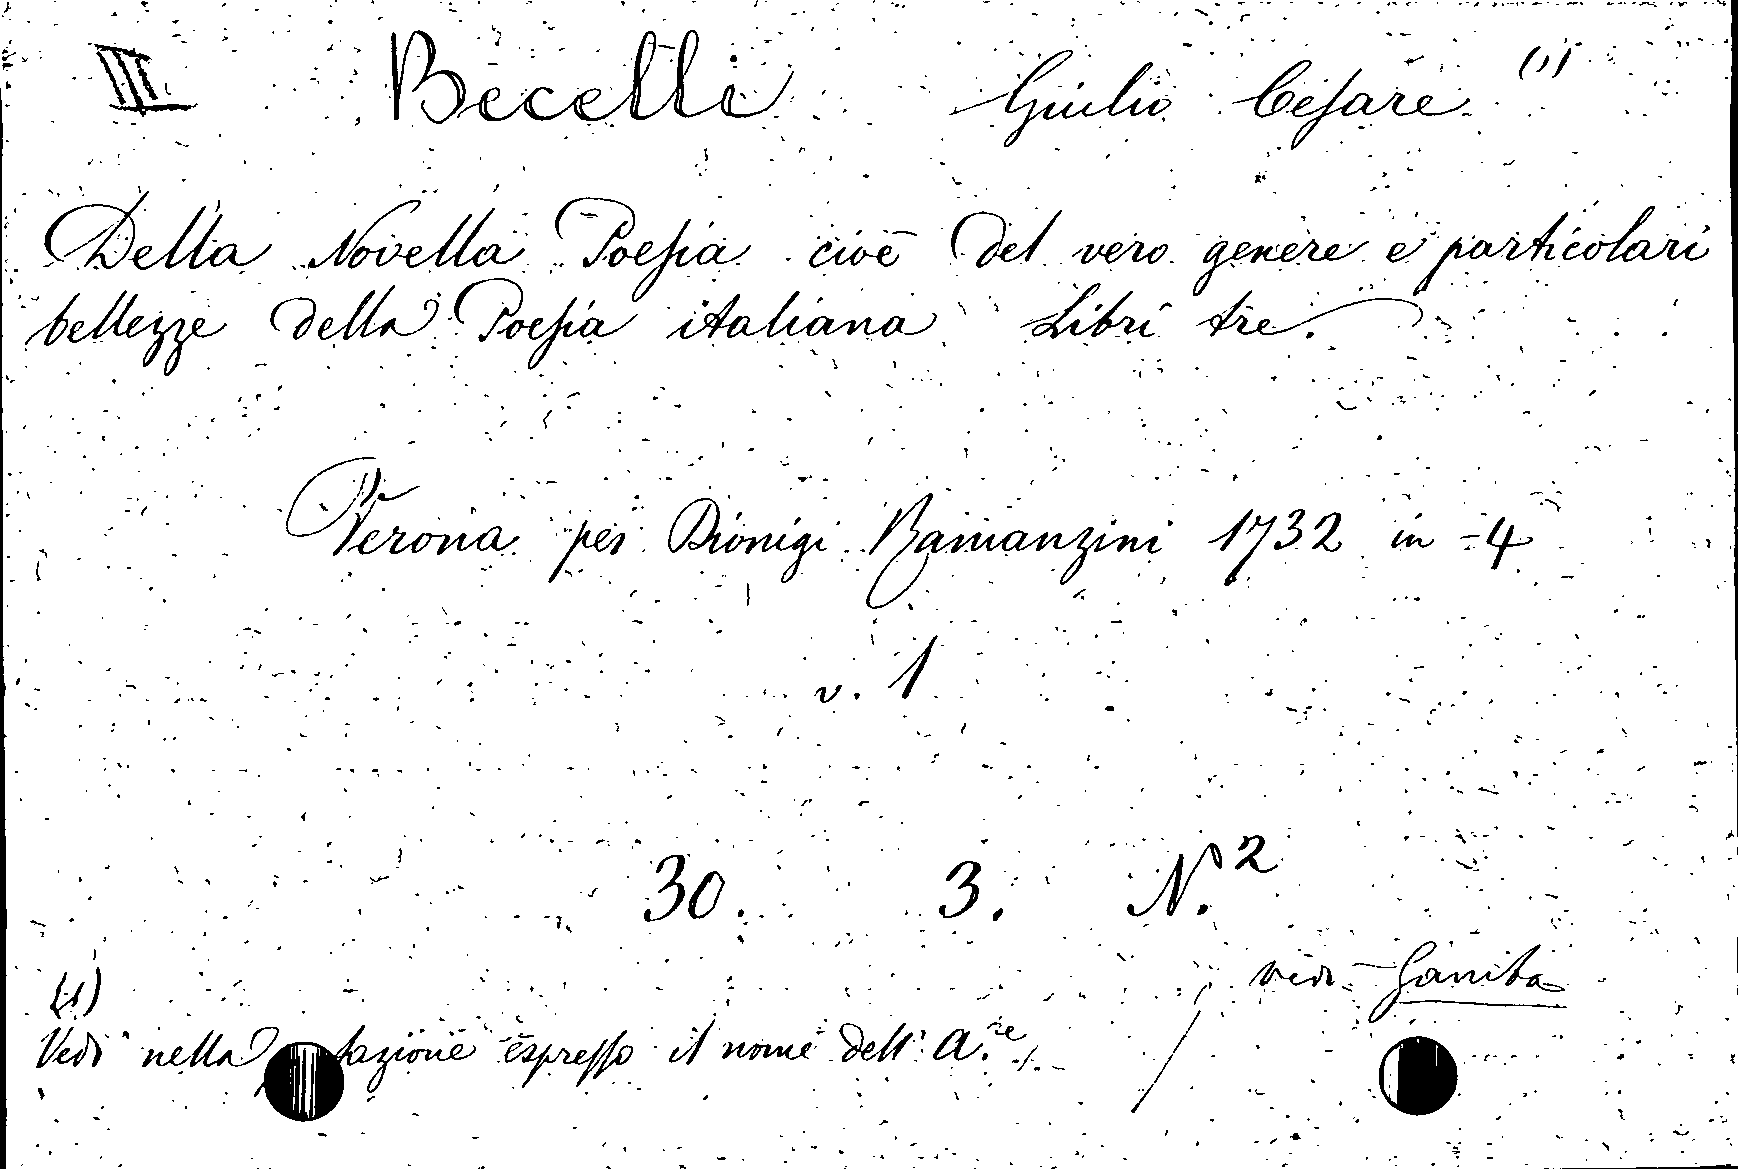 III Becelli Giulio Cesare (1)
Della Novella Poesia cioè del vero genere e particolari
bellezze della Poesia italiana Libri tre.
Verona per Dionigi Ramanzini 1732 in-4
v. 1
30. 3. N.2
vedi Ganiba
(1)
Vedi nella espresso il nome dell' A.re